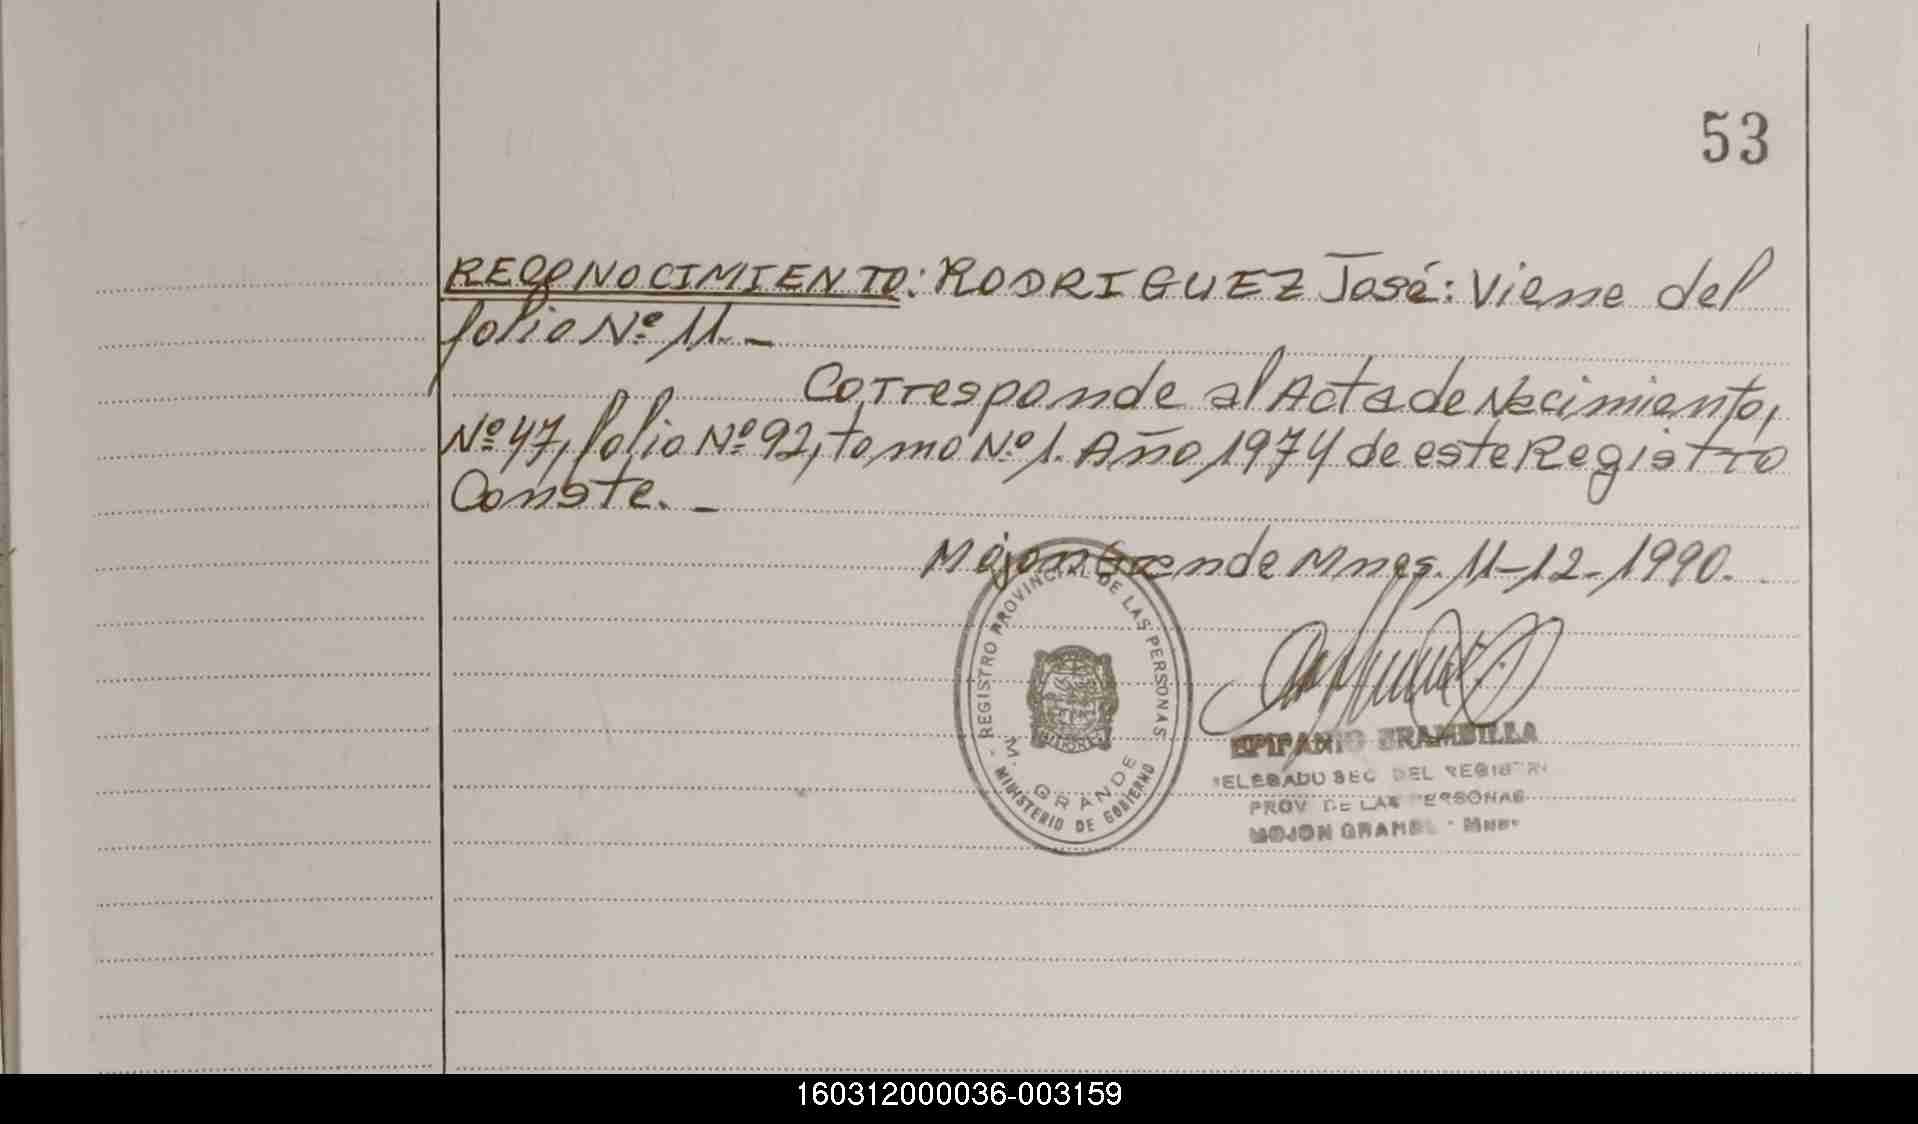 53
RECONOCIMIENTO: RODRIGUEZ José: Viene del
folio Nº 11. _
Corresponde al Acta de Nacimiento,
Nº 47, folio Nº 92, tomo Nº 1. Año 1974 de este Registro
Conste. _
Mojon Grande Mnes. 11-12-1990.
- REGISTRO PROVINCIAL DE LAS PERSONAS -
M. GRANDE
MINISTERIO DE GOBIERNO
EPIFANIO BRAMBILLA
DELEGADO SEC. DEL REGISTRO
PROV. DE LAS PERSONAS
MOJON GRANDE - Mnes
160312000036-003159